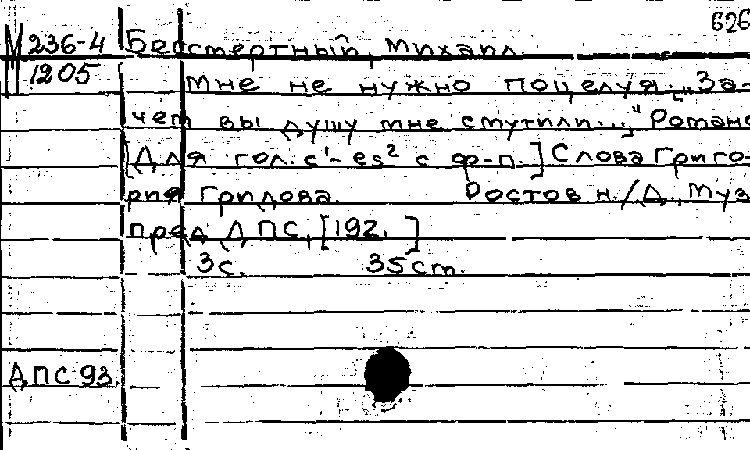 626
М 236-4 Бессмертный, Михаил
1205 Мне не нужно поцелуя. „За-
чем вы душу мне смутили..." Романс
[Для гол. c¹- es² с ф-п.] Слова Григо-
рия Гридова. Ростов н./Д, Муз
пред ДПС, [192. ]
3с. 35 ст.
ДПС 93